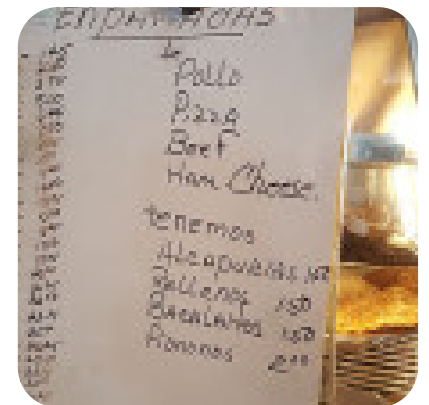 Empanadas
Pollo
Pizza
Beef
Ham Cheese.
tenemos
Alcapurrias
Rellenos 1.50
Bacalaitos 1.50
Pionono